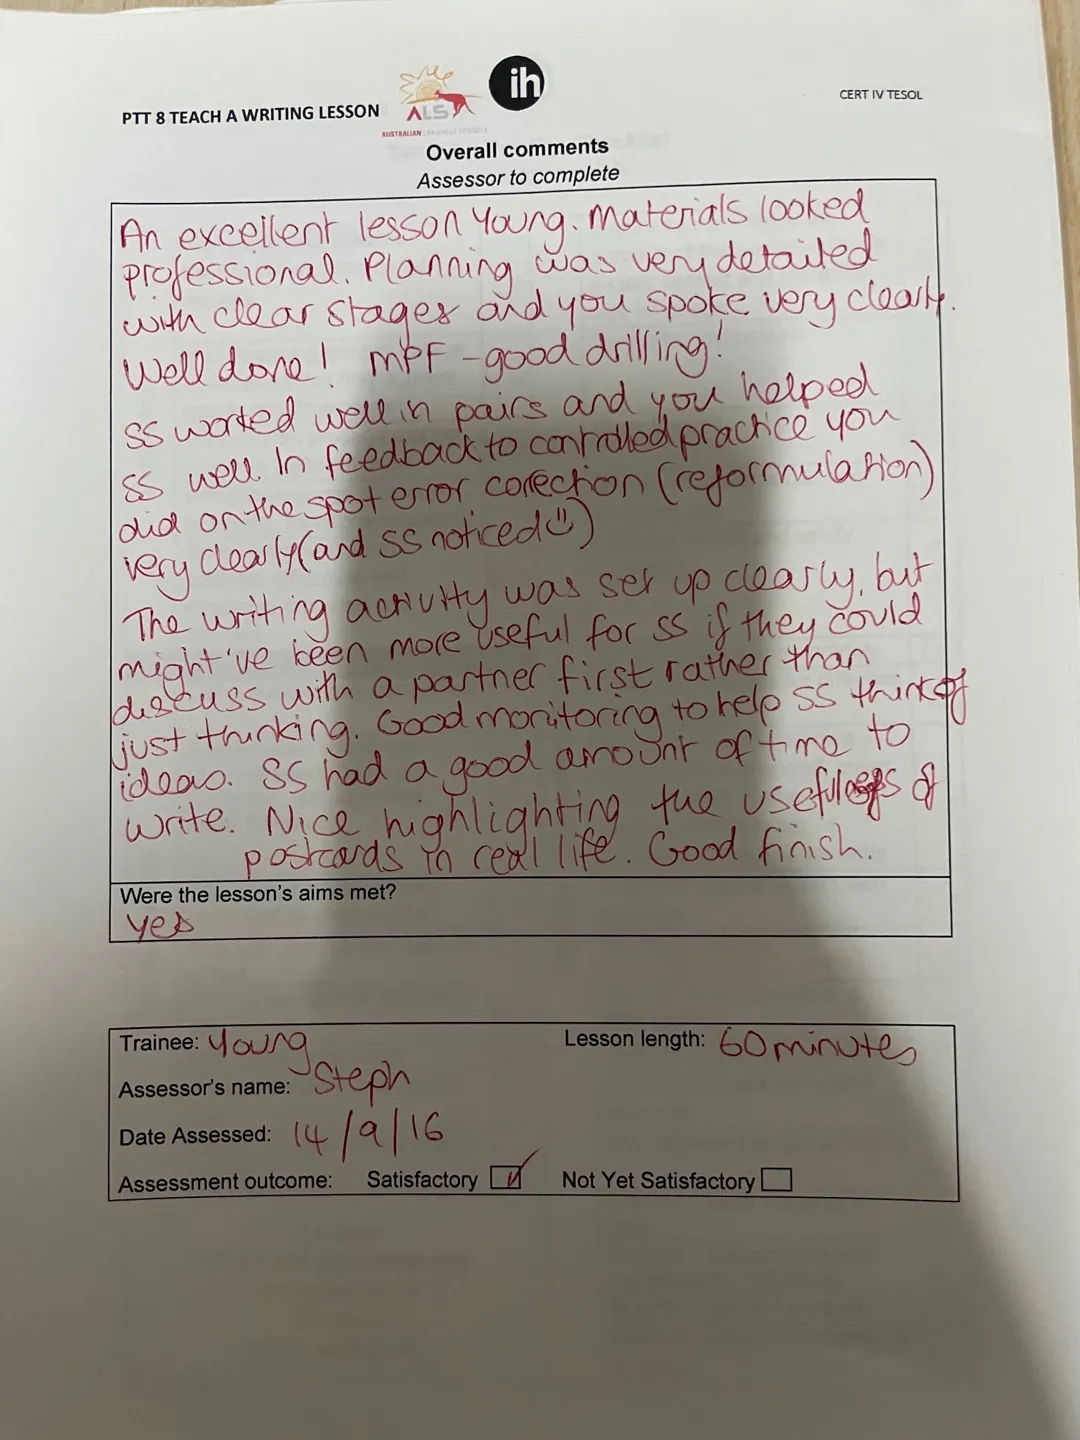 PTT 8 TEACH A WRITING LESSON
ALS
AUSTRALIAN LANGUAGE SCHOOLS
ih
CERT IV TESOL
Overall comments
Assessor to complete
An excellent lesson Young. Materials looked
professional. Planning was very detailed
with clear stages and you spoke very clearly.
Well done! MPF - good drilling!
SS worked well in pairs and you helped
SS well. In feedback to controlled practice you
did on the spot error correction (reformulation)
very clearly (and SS noticed☺)
The writing activity was set up clearly, but
might've been more useful for SS if they could
discuss with a partner first rather than
just thinking. Good monitoring to help SS think of
ideas. SS had a good amount of time to
write. Nice highlighting the of
postcards in real life. Good finish.
Were the lesson's aims met?
yes
Trainee: Young
Lesson length: 60 minutes
Assessor's name: Steph
Date Assessed: 14/9/16
Assessment outcome: Satisfactory ☑ Not Yet Satisfactory ☐